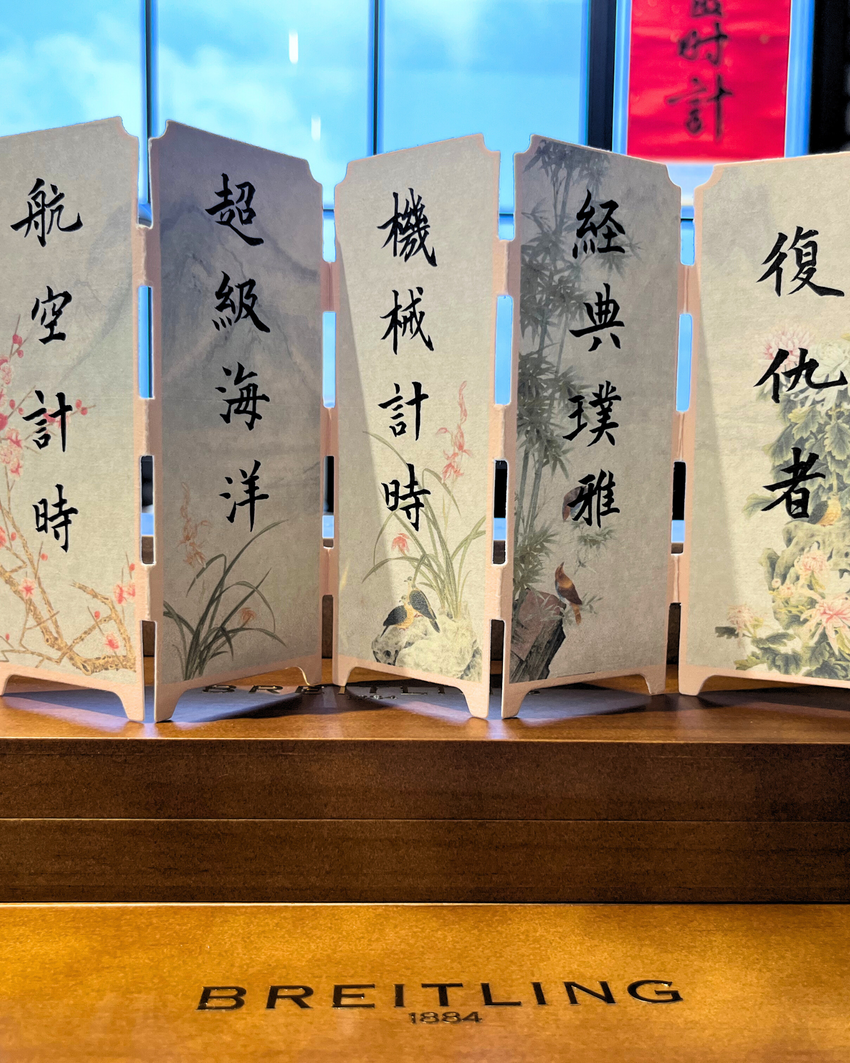 时計
航空計時
超級海洋
機械計時
経典璞雅
復仇者
BREITLING
1884